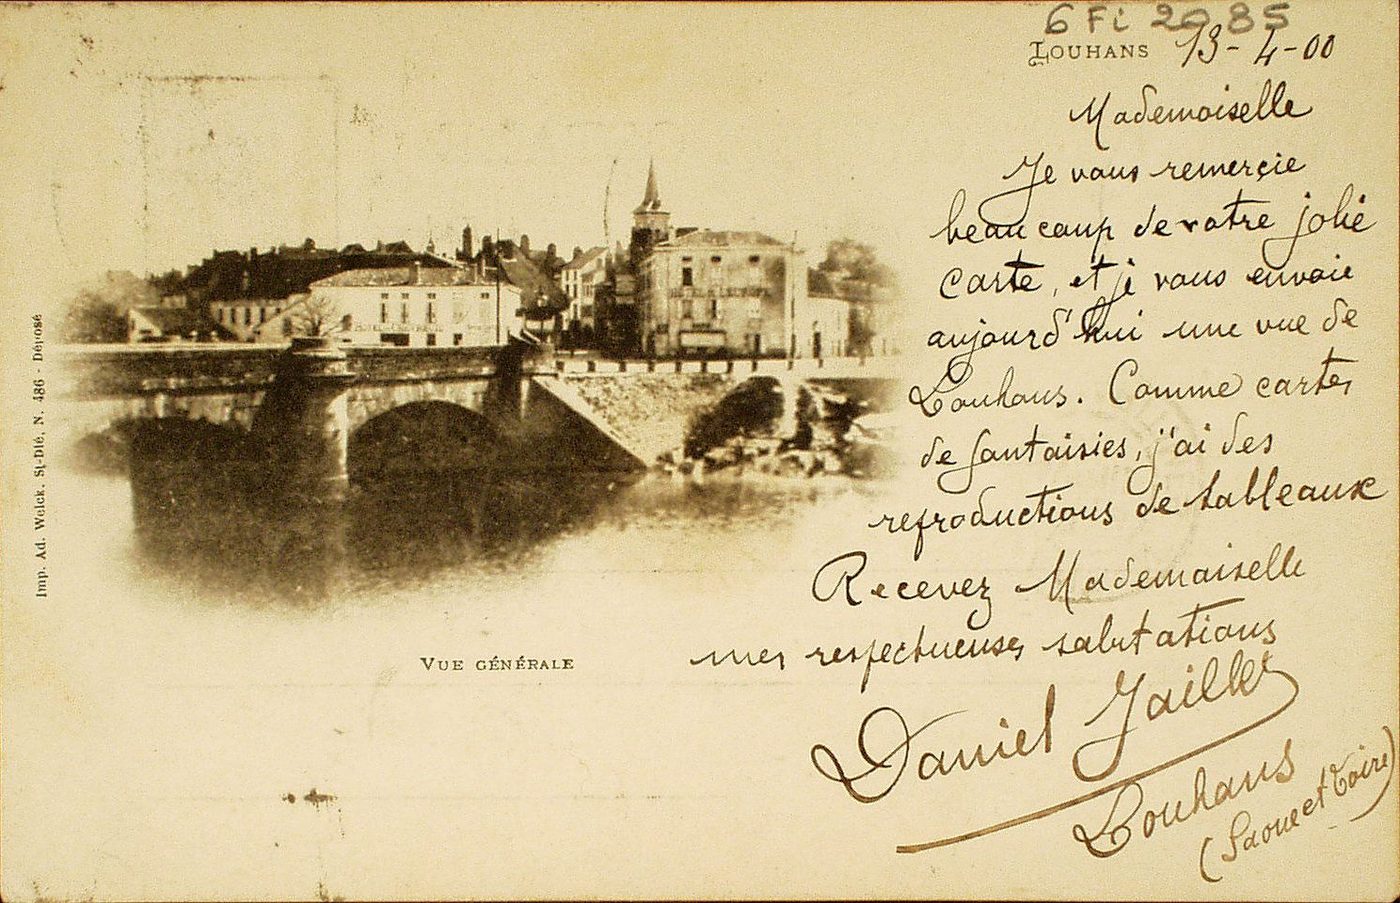 6 Fi 2985
LOUHANS 13-4-00
Mademoiselle
Je vous remerçie
beaucoup de votre jolie
carte, et je vous envoie
aujourd'hui une vue de
Louhans. Comme cartes
de fantaisies, j'ai des
reproductions de tableaux
Recevez Mademoiselle
mes respectueuses salutations
Daniel
Louhans
(Saone et Loire)
VUE GÉNÉRALE
Imp. Ad. Weick. St-Dié, N. 486 - Déposé